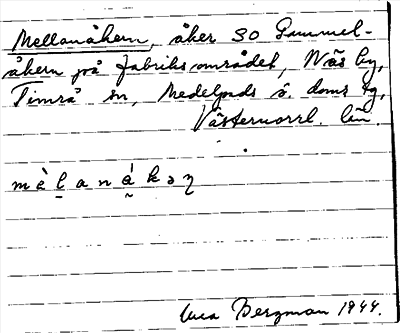 Mellanåkern, åker SO Gammel-
åkern på fabriksområdet, Näs by,
Timrå sn, Medelpads ö. doms tg,
Västernorrl. län.
mèl̥anákəɳ
Bergman 1944.